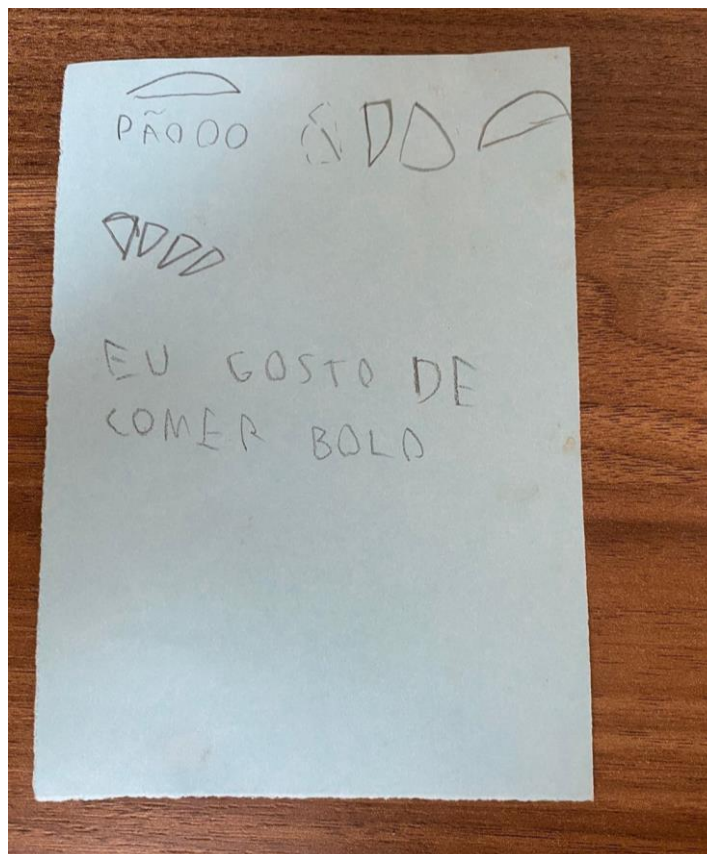 PÃOOO
EU GOSTO DE
COMER BOLO